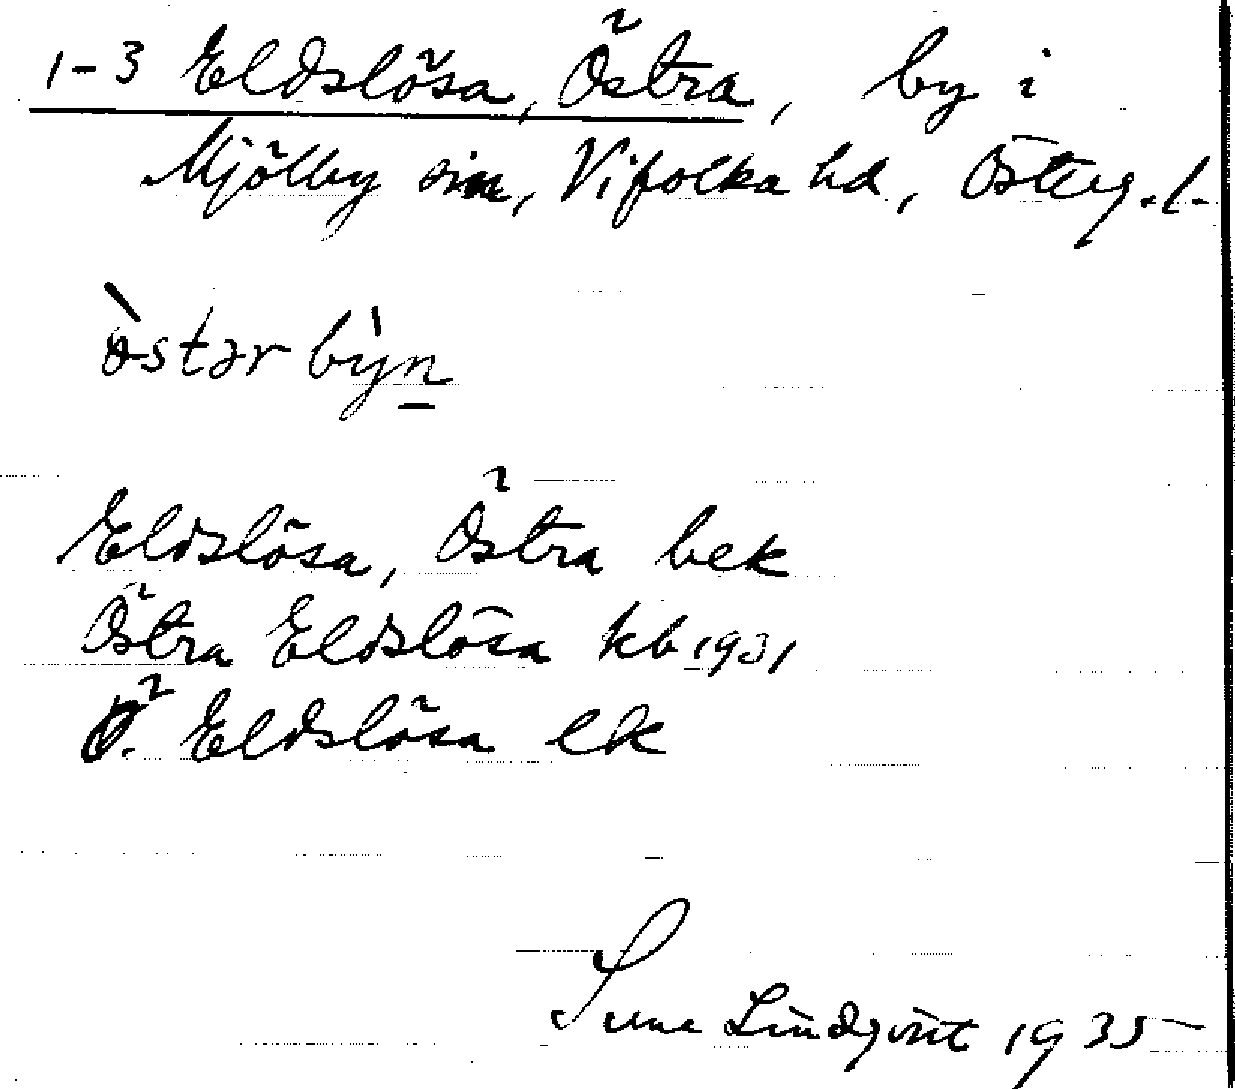 1-3 Eldslösa, Östra, by i
Mjölby sn, Vifolka hd,Österg. l.
östər byn
Eldslösa, Östra bek
Östra Eldslösa kb 1931
Ö. Eldslösa ek
Sune Lindqvist 1935